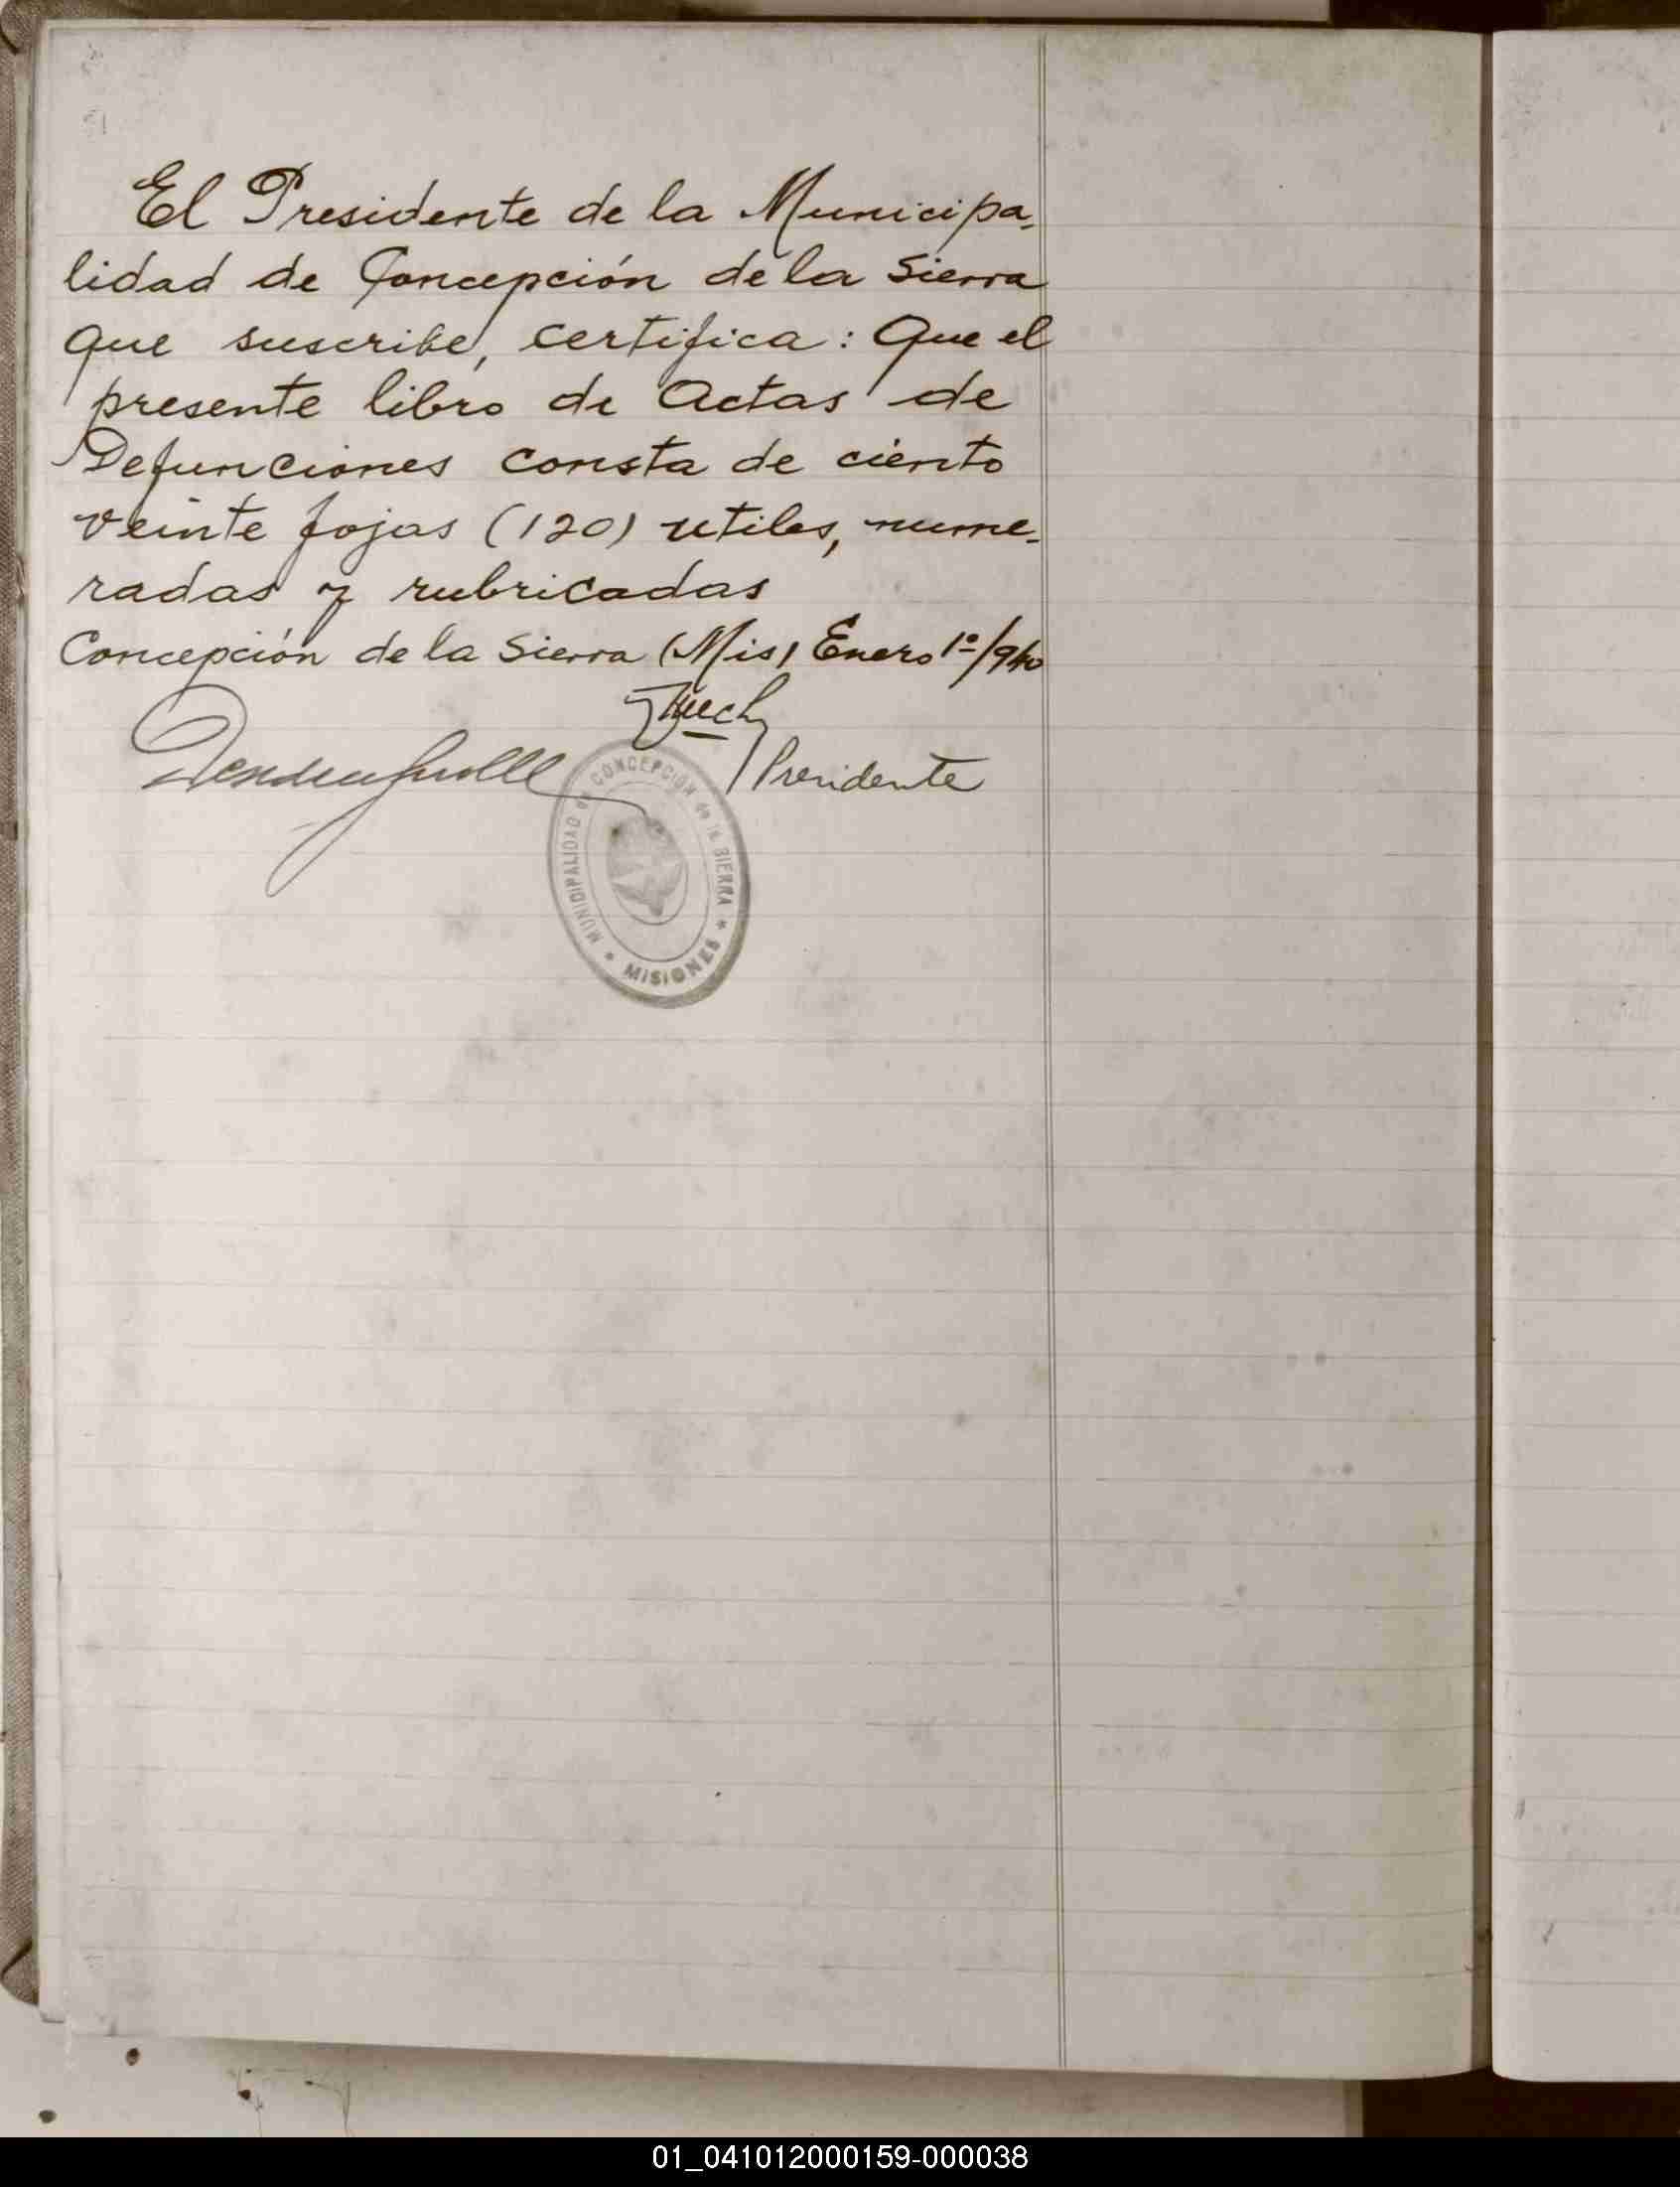 El Presidente de la Municipa-
lidad de Concepción de la Sierra
que suscribe, certifica: Que el
presente libro de Actas de
Defunciones consta de ciento
veinte fojas (120) utiles, nume-
radas y rubricadas
Concepción de la Sierra (Mis) Enero 1º/940
Presidente
MUNICIPALIDAD de CONCEPCIÓN de la SIERRA
* MISIONES *
01_041012000159-000038